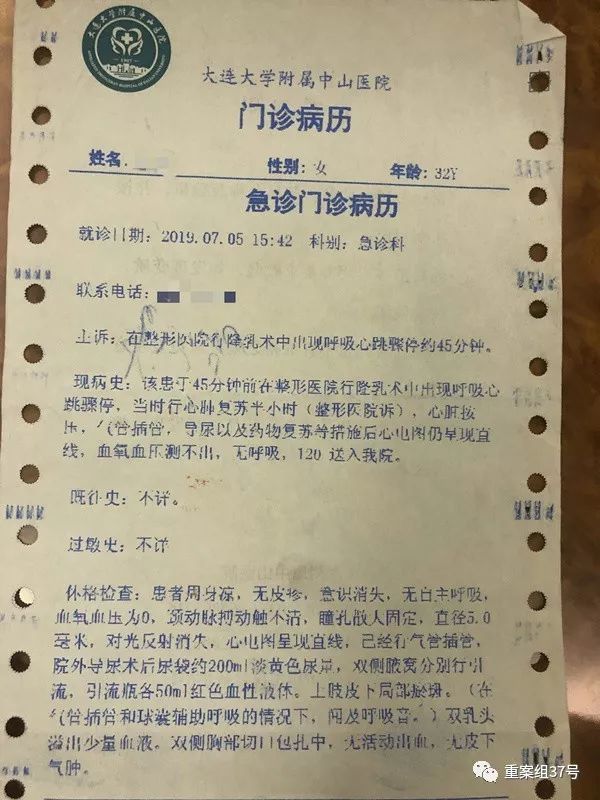 大连大学附属中山医院
大连大学附属中山医院
门诊病历
姓名: 性别: 女 年龄: 32Y
急诊门诊病历
就诊日期: 2019.07.05 15:42 科别: 急诊科
联系电话:
主诉: 在整形医院行隆乳术中出现呼吸心跳骤停约45分钟。
现病史: 该患于45分钟前在整形医院行隆乳术中出现呼吸心
跳骤停, 当时行心肺复苏半小时 (整形医院诉), 心脏按
压, 气管插管, 导尿以及药物复苏等措施后心电图仍呈现直
线, 血氧血压测不出, 无呼吸, 120 送入我院。
既往史: 不详。
过敏史: 不详
体格检查: 患者周身凉, 无皮疹, 意识消失, 无自主呼吸,
血氧血压为0, 颈动脉搏动触不清, 瞳孔散大固定, 直径5.0
毫米, 对光反射消失, 心电图呈现直线, 已经行气管插管,
院外导尿术后尿袋约200ml淡黄色尿量, 双侧腋窝分别行引
流, 引流瓶各50ml红色血性液体。上肢皮下局部瘀斑。(在
气管插管和球囊辅助呼吸的情况下, 闻及呼吸音。) 双乳头
溢出少量血液。双侧胸部切口包扎中, 无活动出血, 无皮下
气肿。
重案组37号